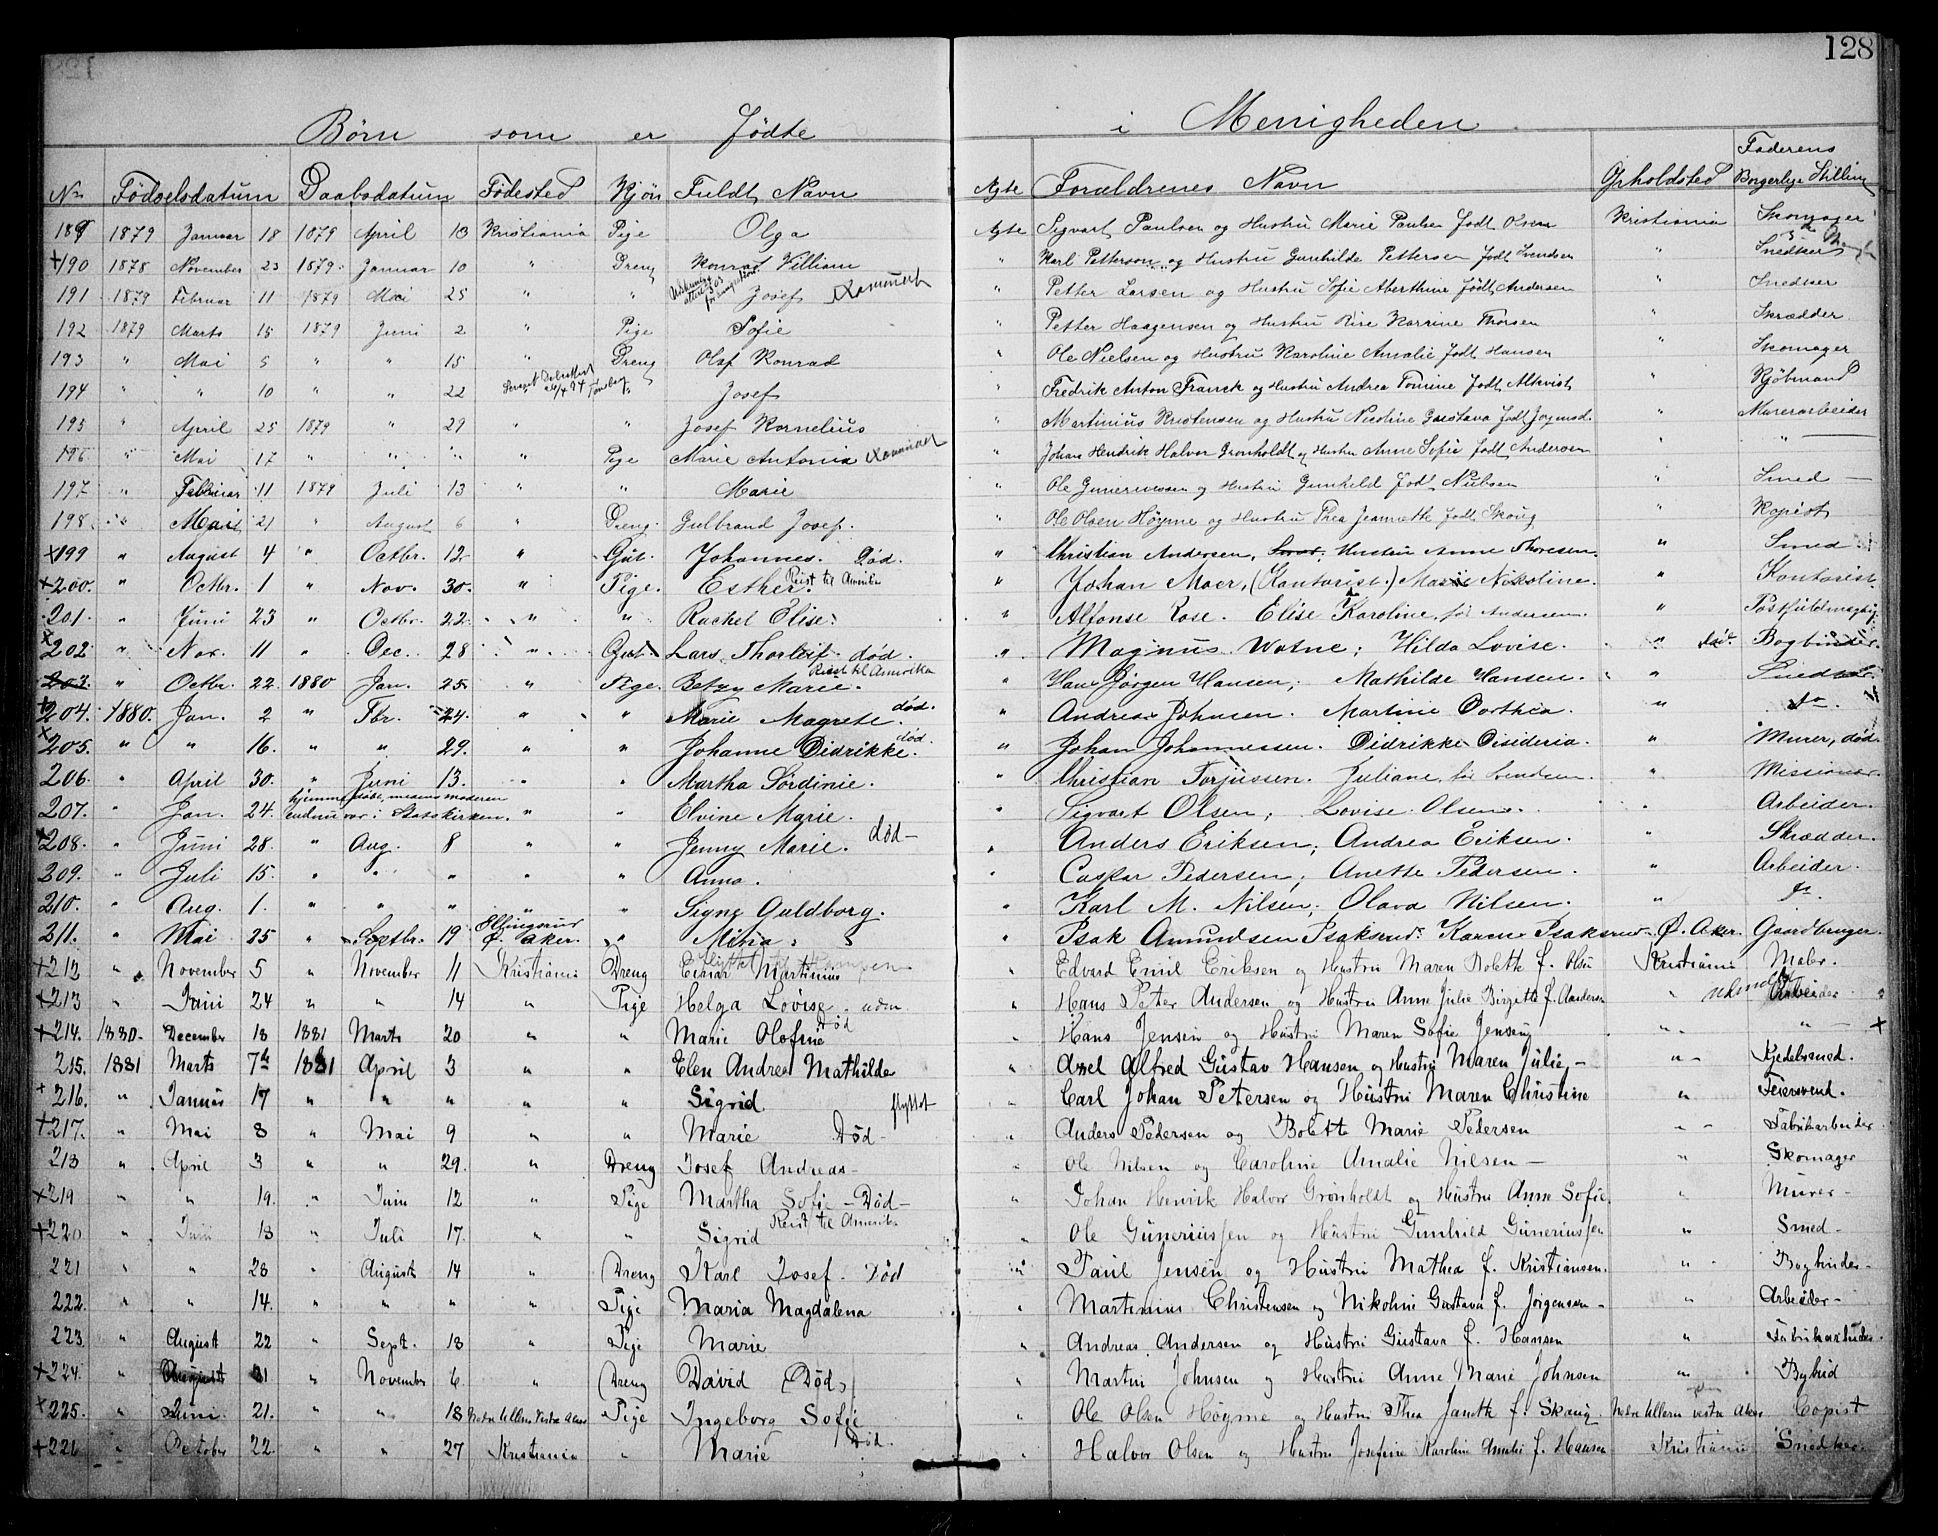 128
Børn som er Fødte i Menigheden
No Fødselsdatum Daabsdatum Fødested Kjøn Fuldt Navn Ægte Forældrenes Navn Opholdsted Faderens Borgerlige Stilling
189 1879 Januar 18 1879 April 13 Kristiania Pige Olga Ægte Sigvart Paulsen og Hustru Marie Paulsen Født Olsen Kristiania Skomager
+190 1878 November 23 1879 Januar 10 " Dreng Konrad Villiam " Karl Petterson og Hustru Gunhilde Pettersen Født Svendsen " Snedker
191 1879 Februar 11 1879 Mai 25 " " Josef " Petter Larsen og Hustru Sofie Født Andersen " Snedker
192 1879 Marts 15 1879 Juni 2 " Pige Sofie " Petter Haagensen og Hustru Karrine Thorsen " Skrædder
193 " Mai 5 " " 15 " Dreng Olaf Konrad " Ole Nielsen og Hustru Karoline Amalie Født Hansen " Skomager
194 " " 10 " " 22 " Josef " Fredrik Anton Franck og Hustru Andrea Tomine Født Alkvist " Kjøbmand
195 " April 25 1879 " 29 " " Josef Kornelius " Martinius Kristensen og Hustru Nicoline Gustava Født " Murerarbeider
196 " Mai 17 " " " " Pige Marie Antonia " Johan Hendrik Halvor Grønholdt og Hustru Anne Sofie Født Andersen " "
197 " Februar 11 1879 Juli 13 " " Marie " Ole Guneriussen og Hustru Gunhild Født Nielsen " Smed
198 " 21 " August 6 " Dreng Gulbrand Josef. " Ole Olsen Høyme og Hustru Thea Jeanette Født Skoug " Kopist
×199 " August 4 " Octbr. 12 " Gut. Johannes. Død. " Christian Andersen, Hustru Anne Thoresen. " Smed
+200. " Octbr. 1 " Nov. 30. " Pige. Esther. Reist til Amerika " Johan Moer, (Kantorist.) Marie Nikoline. " Kontorist.
201. " Juni 23 " Octbr. 22. " " Rachel Elise. " Alfonse Rose. Elise Karoline, før Andersen. "
×202. " Nov. 11 " Dec. 28 " Gut Lars Thorleif. død. " Magnus Watne; Hilda Lovise. " død. Bogbinder.
203. " Octbr. 22. 1880 Jan. 25. " Pige. Betzy Marie. Reist til Amerika " Hans Jørgen Hansen; Mathilde Hansen. " Snedker.
+204. 1880. Jan. 2 " Fbr. 24. " " Marie Magrete. død. " Andreas Johnsen. Martine Dorthea. " do
×205. " " 16. " " 29. " " Johanne Didrikke. død. " Johan Johannessen. Didrikke Disideria. " Murer, død.
206. " April 30. " Juni 13. " " Martha Sørdinie. " Christian Torjussen. Juliane, før Svendsen. " Missionær.
207. " Jan. 24. hjemmedøbt, mesens moderen endnu var i Statskirken. " " Elvine Marie. " Sigvart Olsen; Lovise Olsen. " Arbeider.
+208. " Juni 28. " Aug. 8 " " Jenny Marie. død " Anders Eriksen; Andrea Eriksen. " Skrædder.
209. " Juli 15. " " " " " Anna. " Caspar Pedersen; Anette Pedersen. " Arbeider.
210. " Aug. 1. " " " " " Signe Guldborg. " Karl M. Nilsen; Olava Nilsen. "
211. " Mai 25 " Septbr. 19 Ellingsrud Ø. Aker. " Mina. " Isak Amundsen Isaksrud. Karen Isaksrud. Ø. Aker. Gaardbruger.
+212 " November 5 " November 11 Kristiania Dreng Einar Martinius " Edvard Emil Eriksen og Hustru Maren Bolette f. Olsen Kristiania Maler.
+213 " Juni 24 " " 14 " Pige Helga Lovise. " Hans Peter Andersen og Hustru Anne Julie Birgitte f. Andersen " Arbeider
+214. 1880. December 18 1881 Marts 20 " " Marie Olofine Død " Hans Jensen og Hustru Maren Sofie Jensen " " +
215. 1881 Marts 7de 1881 April 3 " " Elen Andrea Mathilde " Axel Alfred Gustav Hansen og Hustru Maren Julie "
+216. " Januar 17 " " " " " Sigrid flyttet " Carl Johan Petersen og Hustru Maren Christine " Feiersvend.
+217. " Mai 8 " Mai 9 " " Marie Død " Anders Pedersen og Bolette Marie Pedersen " Fabrikarbeider
218 " April 3 " " 29. " Dreng Josef Andreas " Ole Nilsen og Caroline Amalie Nilsen " Skomager
+219 " " 19. " Juni 12 " Pige Martha Sofie Død " Johan Henrik Halvor Grønholdt og Hustru Anne Sofie. " Murer
+220 " Juni 13 " Juli 17. " " Sigrid Reist til Amerika " Ole Guneriussen og Hustru Gunhild Guneriussen " Smed
221 " " 28 " August 14 " Dreng Karl Josef. Død " Paul Jensen og Hustru Mathea f. Kristiansen. " Bogbinder
222. " " 14. " " " " Pige Maria Magdalena " Martinius Christensen og Nikoline Gustava f. Jørgensen " Arbeider
223. " August 22 " Sept. 18 " Pige Marie " Andreas Andersen og Hustru Gustava f. Hansen " Fabrikarbeider
+224. " August 31 " November 6. " Dreng David (Død) " Martin Johnsen og Hustru Anne Marie Johnsen " Bybud
×225. " Juni 21. " " 13 Nedre Ullern Vestre Aker Pige Ingeborg Sofie " Ole Olsen Høyme og Hustru Thea Janette f. Skaug. Nedre Ullern vestre Aker Copist
+226 " October 22. " " 27 Kristiania " Marie Død. " Halvor Olsen og Hustru Josefine Karoline Amalie f. Hansen Kristiania Snedker.